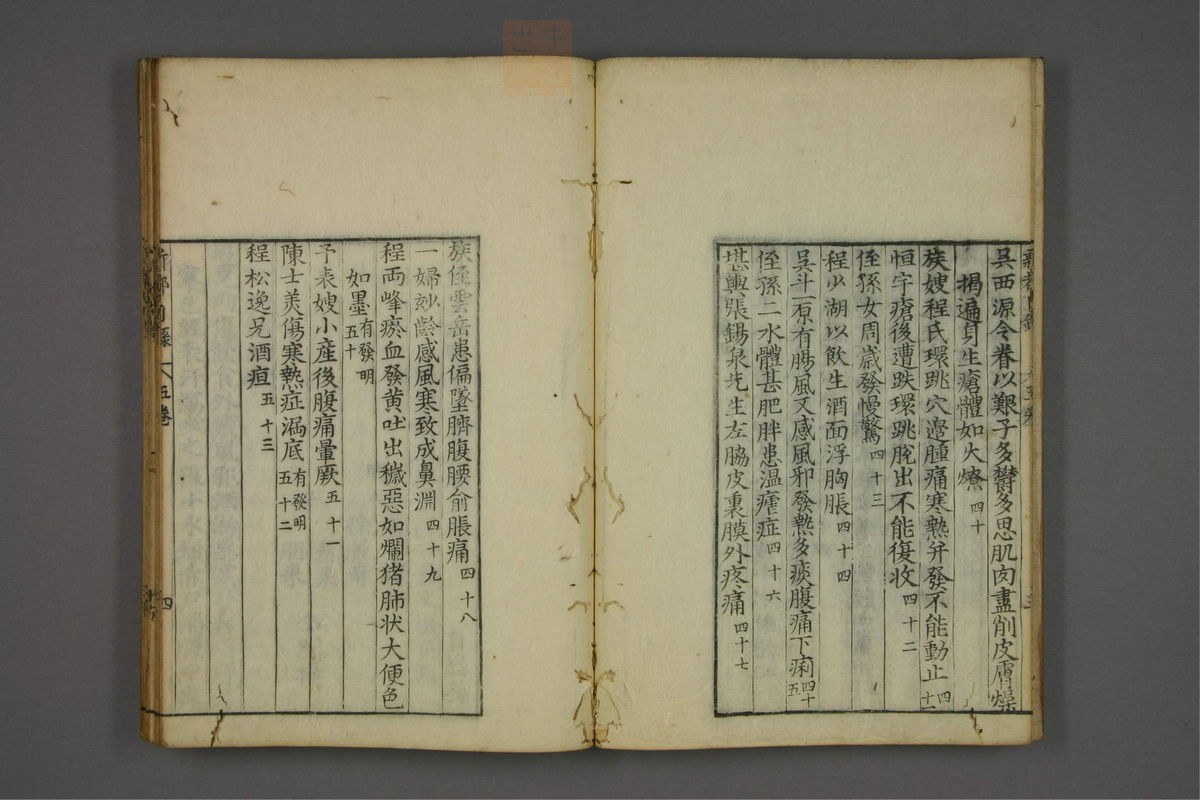 吳西源令眷以艱子多鬱多思肌肉盡削皮膚燥
揭遍身生瘡體如火燎 四十
族嫂程氏環跳穴邊腫痛寒熱并發不能動止 四十一
恒宇瘡後遭跌環跳脫出不能復收 四十二
侄孫女周歲發慢驚 四十三
程少湖以飲生酒面浮胸脹 四十四
吳斗一原有腸風又感風邪發熱多痰腹痛下痢 四十五
侄孫二水體甚肥胖患溫瘧症 四十六
堪輿張錫泉先生左脇皮裏膜外疼痛 四十七
族侄雲岳患偏墜臍腹腰俞脹痛 四十八
一婦妙齡感風寒致成鼻淵 四十九
程兩峰瘀血發黃吐出穢惡如爛猪肺狀大便色
如墨 有發明 五十
予表嫂小產後腹痛暈厥 五十一
陳士美傷寒熱症漏底 有發明 五十二
程松逸兄酒疸 五十三
五卷
四